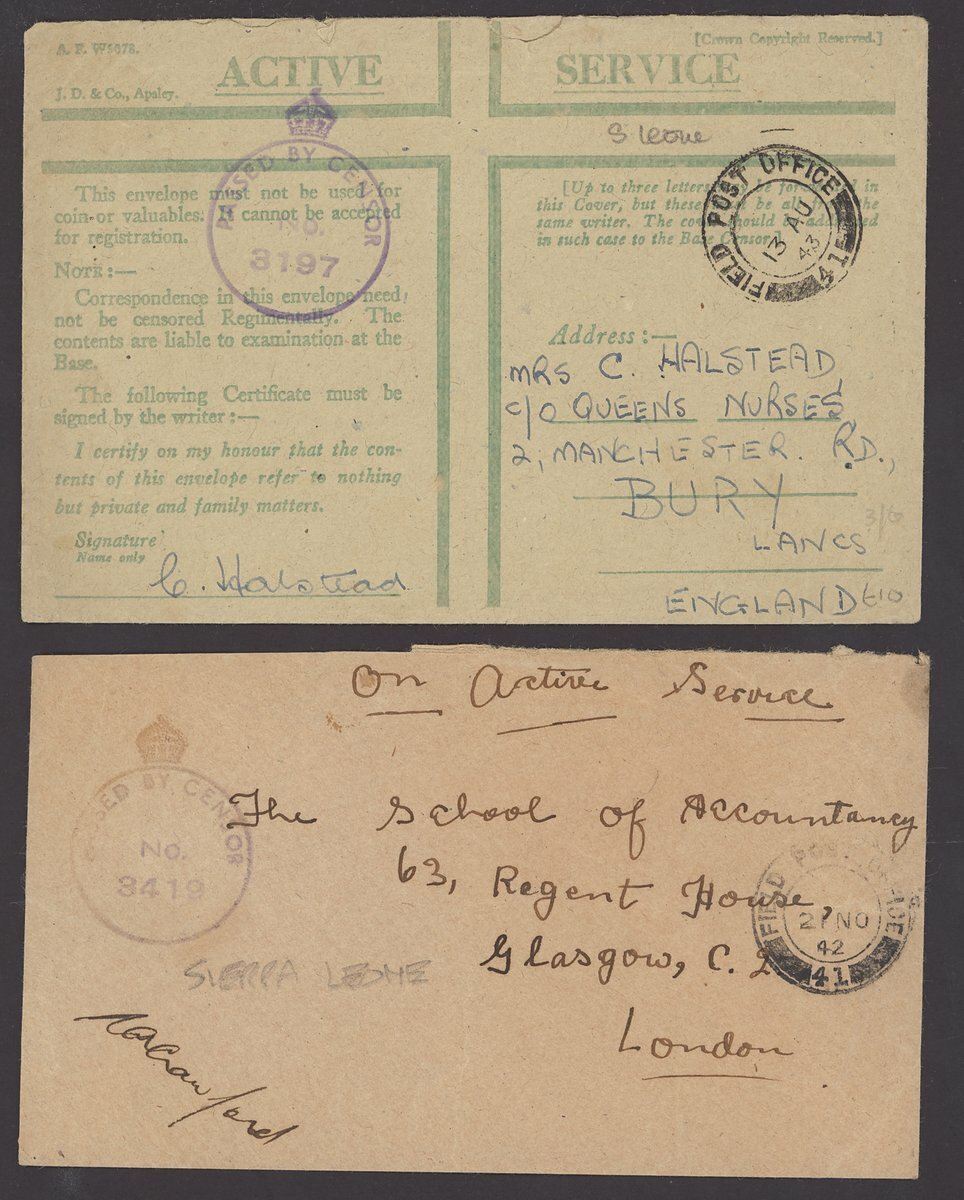 A. F. W5078.
[Crown Copyright Reserved.]
ACTIVE SERVICE
J. D. & Co., Apsley.
S Leone
PASSED BY CENSOR
No.
3197
FIELD POST OFFICE
13 AU
43
415
This envelope must not be used for
coin or valuables. It cannot be accepted
for registration.
NOTE:—
Correspondence in this envelope need
not be censored Regimentally. The
contents are liable to examination at the
Base.
The following Certificate must be
signed by the writer:—
I certify on my honour that the con-
tents of this envelope refer to nothing
but private and family matters.
Signature
Name only
C. Halstead
[Up to three letters may be forwarded in
this Cover, but these must be all from the
same writer. The cover should be addressed
in such case to the Base Censor.]
Address:—
MRS C. HALSTEAD
C/O QUEENS NURSES
2, MANCHESTER. RD.,
BURY
LANCS
ENGLAND
£10
On Active Service
PASSED BY CENSOR
No.
3419
The School of Accountancy
63, Regent House,
Glasgow, C. 2
London
FIELD POST OFFICE
21 NO
42
41
SIERRA LEONE